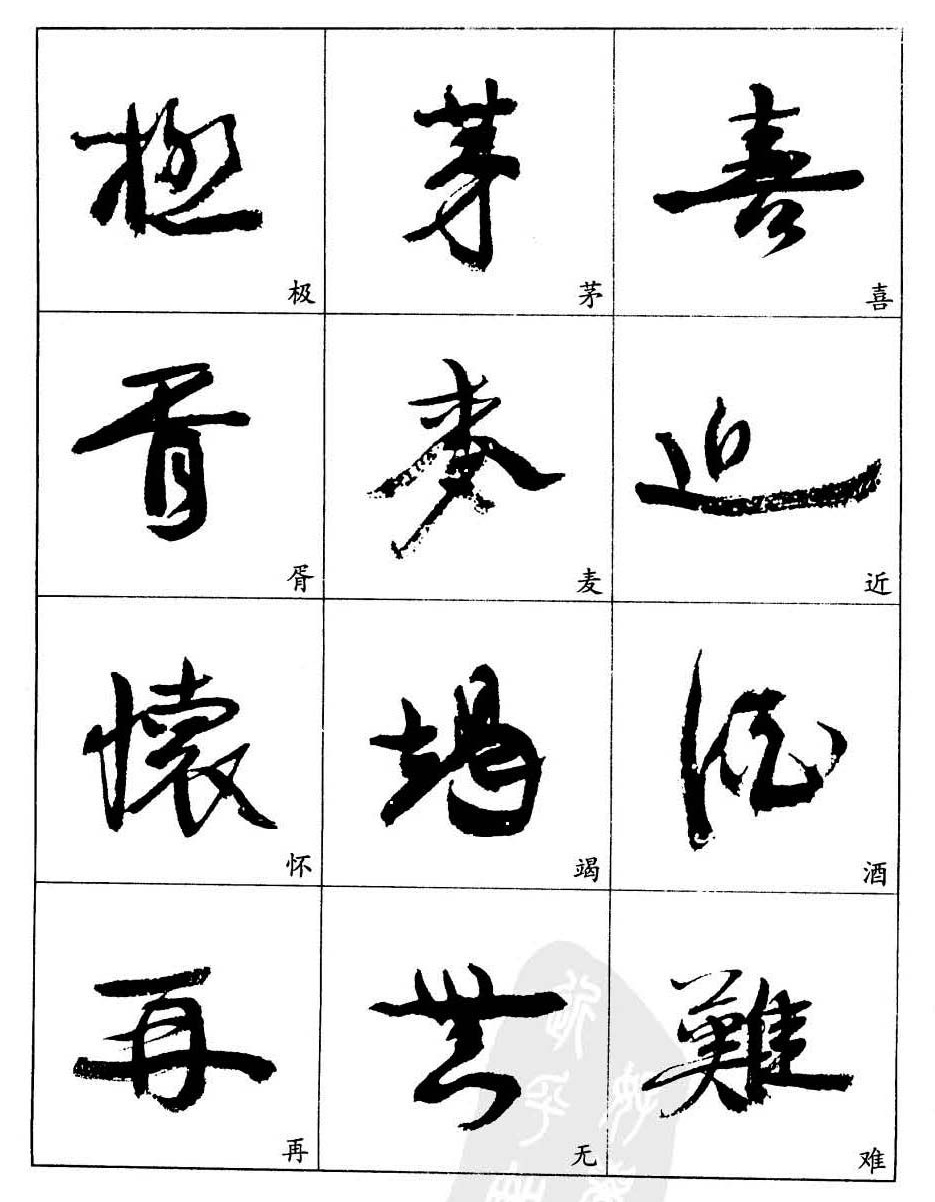 極 茅 喜
极 茅 喜
胥 麥 近
胥 麦 近
懷 竭 酒
怀 竭 酒
再 無 難
再 无 难